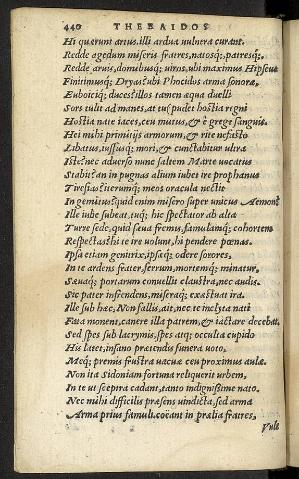 440 THEBAIDOS
Hi quærunt artus. illi ardua uulnera curant.
Redde agedum miseris fratres, natosq;, patresq;.
Redde aruis, domibusq; uiros, ubi maximus Hipseus
Finitimusq; Dryas? ubi Phocidos arma sonoræ,
Euboiciq; duces? illos tamen æqua duelli
Sors tulit ad manes, at tu, pudet hostia regni
Hostia nate iaces, ceu mutus, & è grege sanguis.
Hei mihi primitijs armorum, & rite nefasto
Libatus, iussusq; mori, & cunctabitur ultra
Iste? nec aduerso nunc saltem Marte uocatus
Stabit? an in pugnas alium iubet ire prophanus
Tiresias? iterumq; meos oracula nectit
In gemitus? quid enim misero super unicus Aemons
Ille iube subeat, tuq; hic spectator ab alta
Turre sede, quid sæua fremis, famulamq; cohortem
Respectas? hi te ire uolunt, hi pendere pœnas.
Ipsa etiam genitrix, ipsæq; odere sorores.
In te ardens frater, ferrum, mortemq; minatur,
Sæuaq; portarum conuellit claustra, nec audis.
Sic pater infrendens, miseraq; exæstuat ira.
Ille sub hæc, Non fallis, ait, nec te inclyta nati
Fata mouent, canere illa patrem, & iactare decebat.
Sed spes sub lacrymis, spes atq; occulta cupido
His latet, insano prætendis funera uoto,
Meq; premis frustra uacuæ ceu proximus aulæ.
Non ita Sidoniam fortuna reliquerit urbem,
In te ut sceptra cadant, tanto indignissime nato.
Nec mihi difficilis præsens uindicta, sed arma
Arma prius famuli, coëant in prælia fratres,
Vult